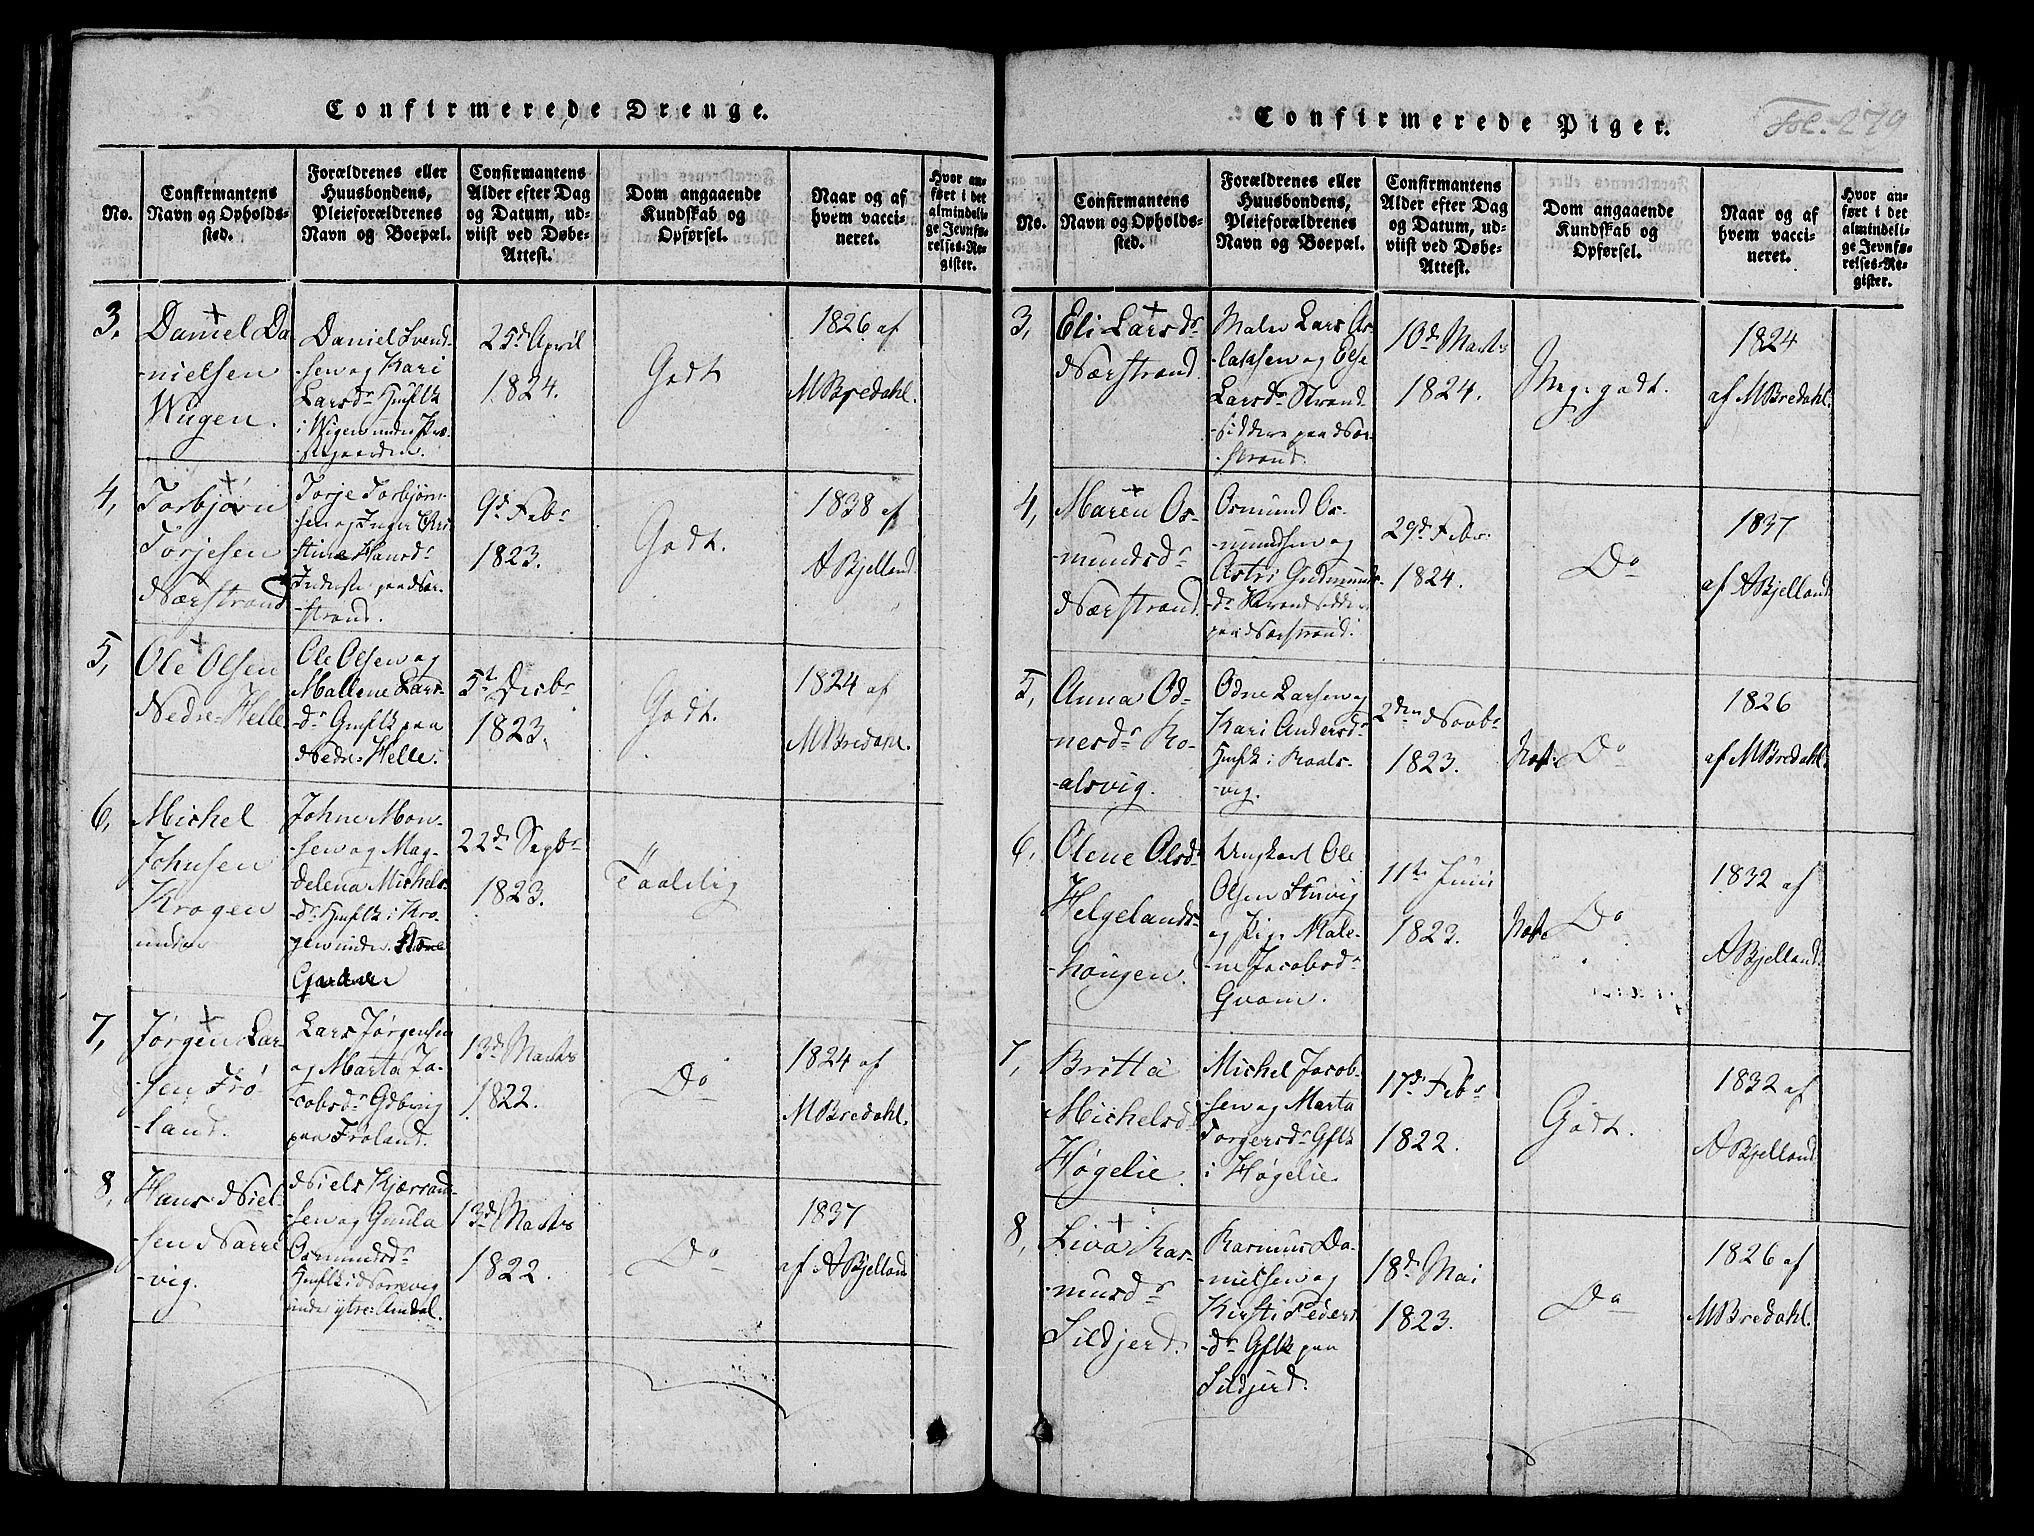 Confirmerede Drenge.
No.
Confirmantens
Navn og Opholds-
sted.
Forældrenes eller
Huusbondens,
Pleieforældrenes
Navn og Boepæl.
Confirmantens
Alder efter Dag
og Datum, ud-
viist ved Døbe-
Attest.
Dom angaaende
Kundskab og
Opførsel.
Naar og af
hvem vacci-
neret.
Hvor an-
ført i det
almindeli-
ge Jevnfø-
relses-Re-
gister.
3,
Daniel Da
-nielsen
Wigen.
Daniel Svend-
-sen og Kari
Larsdr Hmflk
i Wigen under Præ-
-stegaarden.
25d April
1824.
Godt
1826 af
M Bredahl.
4,
Torbjørn
Torjesen
Nærstrand
Torje Torbjørn-
sen og Inger Chri
stine Hansdr
Inderste paa Nær-
-strand.
9d Febr
1823.
Godt.
1838 af
A Bjelland.
5,
Ole Olsen
Nedre-Helle
Ole Olsen og
Mallene Lars-
-dr Gmflk paa
Nedre-Helle.
5t Decbr
1823.
Godt.
1824 af
M Bredahl.
6,
Michel
Johnsen
Krogen
under
Johne Mon-
-sen og Mag-
delena Michels-
-dr Hmflk i Kro-
gen under
22d Septbr
1823.
Taalelig
7,
Jørgen Lar-
-sen Frø-
-land.
Lars Jørgensen
og Marta Ja-
-cobsdr
paa Frøland.
13d Marts
1822.
Do
1824 af
M Bredahl.
8,
Hans Niel-
sen Narre
-vig.
Niels Kjærrand-
-sen og Gunla
Osmundsdr
Hmflk i Narrevig
under ytre-Amdal.
13d Marts
1822.
Do
1837
af A Bjelland
Confirmerede Piger.
Fol. 279
No.
Confirmantens
Navn og Opholds-
sted.
Forældrenes eller
Huusbondens,
Pleieforældrenes
Navn og Boepæl.
Confirmantens
Alder efter Dag
og Datum, ud-
viist ved Døbe-
Attest.
Dom angaaende
Kundskab og
Opførsel.
Naar og af
hvem vacci-
neret.
Hvor an-
ført i det
almindeli-
ge Jevnfø-
relses-Re-
gister.
3,
Eli Larsdr
Nærstrand.
Maler Lars As-
-laksen og Else
Larsdr Strand-
-siddere paa Nær-
-strand.
10d Marts
1824.
Meget godt.
1824
af M Bredahl.
4,
Maren Os-
-mundsdr
Nærstrand.
Osmund Os-
-mundsen og
Astri Gudmunds-
-dr Strandsidder
paa Nærstrand.
29d Febr.
1824.
Do
1837
af A Bjelland
5,
Anna Od-
nesdr Ro-
-alsvig.
Odne Larsen og
Kari Andersdr
Hmflk i Roals-
-vig.
2den Novbr
1823.
Do
1826
af M Bredahl.
6,
Olene Olsdr
Helgelands-
-hougen.
Ungkarl Ole
Olsen Stuvig
og Pige Male-
-ne Jacobsdr
Qvam.
11te Juni
1823.
Do
1832 af
A Bjelland.
7,
Britta
Michelsdr
Høgelie.
Michel Jacob-
-sen og Marta
Torgersdr Gflk
i Høgelie
17d Febr
1822.
Godt.
1832 af
A Bjelland
8,
Liva Ras-
-musdr
Sildjerd.
Rasmus Da-
-nielsen og
Kirsti Peders
-dr Gflk paa
Sildjerd.
18d Mai
1823.
Do
1826 af
M Bredahl.